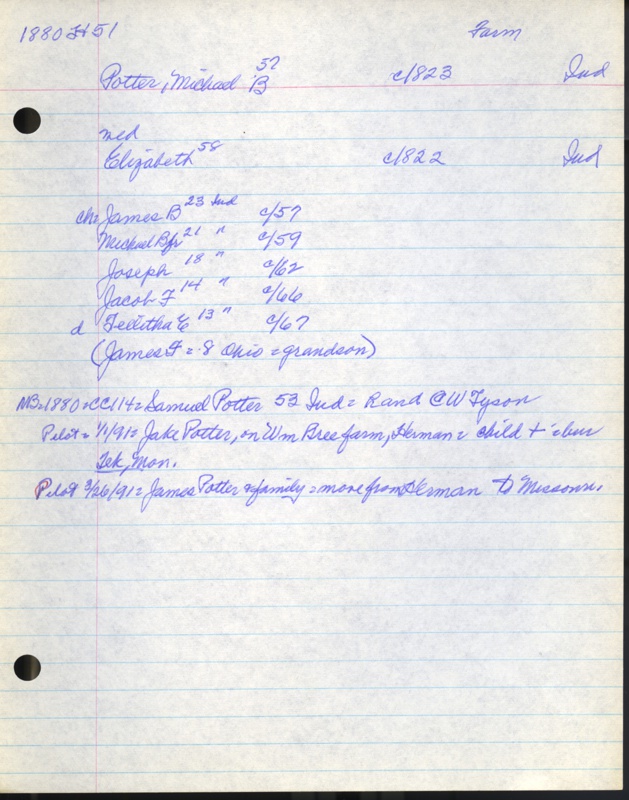 1880 H51 Farm
Potter, Michael B 57 c/823 Ind
med
Elizabeth 58 c/822 Ind
ch= James B 23 Ind c/57
Michael B Jr 21 " c/59
Joseph 18 " c/62
Jacob F 14 " c/66
d Tellitha E 13 " c/67
(James F = 8 Ohio = grandson)
NB=1880=CC114= Samuel Potter 53 Ind= R and CW Tyson
Pilot= 1/1/91= Jake Potter, on Wm Bres farm, Herman= child + =bur
Tek, Mon.
Pilot 3/26/91= James Potter & family = move from Herman to Missouri.